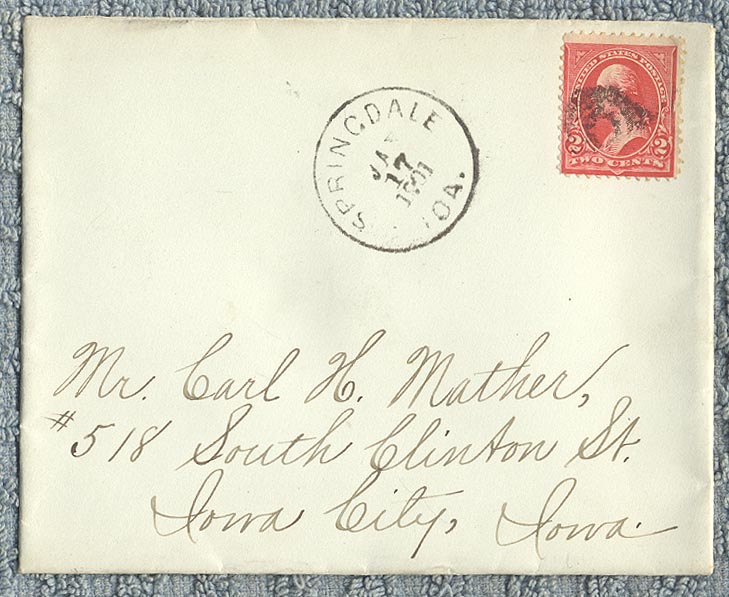 UNITED STATES POSTAGE
2 2
TWO CENTS
SPRINGDALE
JA
17
1901
IOA.
Mr. Carl H. Mather,
#518 South Clinton St.
Iowa City, Iowa.